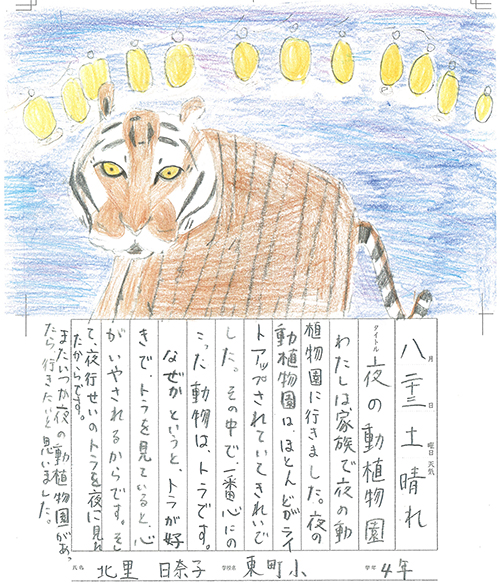 八月二十三日 土曜日 天気 晴れ
タイトル 夜の動植物園
わたしは、家族で夜の動
植物園に行きました。夜の
動植物園は、ほとんどがライ
トアップされていてきれいで
した。その中で、一番心にの
こった動物は、トラです。
なぜかというと、トラが好
きで、トラを見ていると、心
がいやされるからです。そし
て、夜行せいのトラを夜に見れ
たからです。
またいつか夜の動植物園があっ
たら、行きたいと思いました。
氏名 北里 日奈子 学校名 東町小 学年 4年